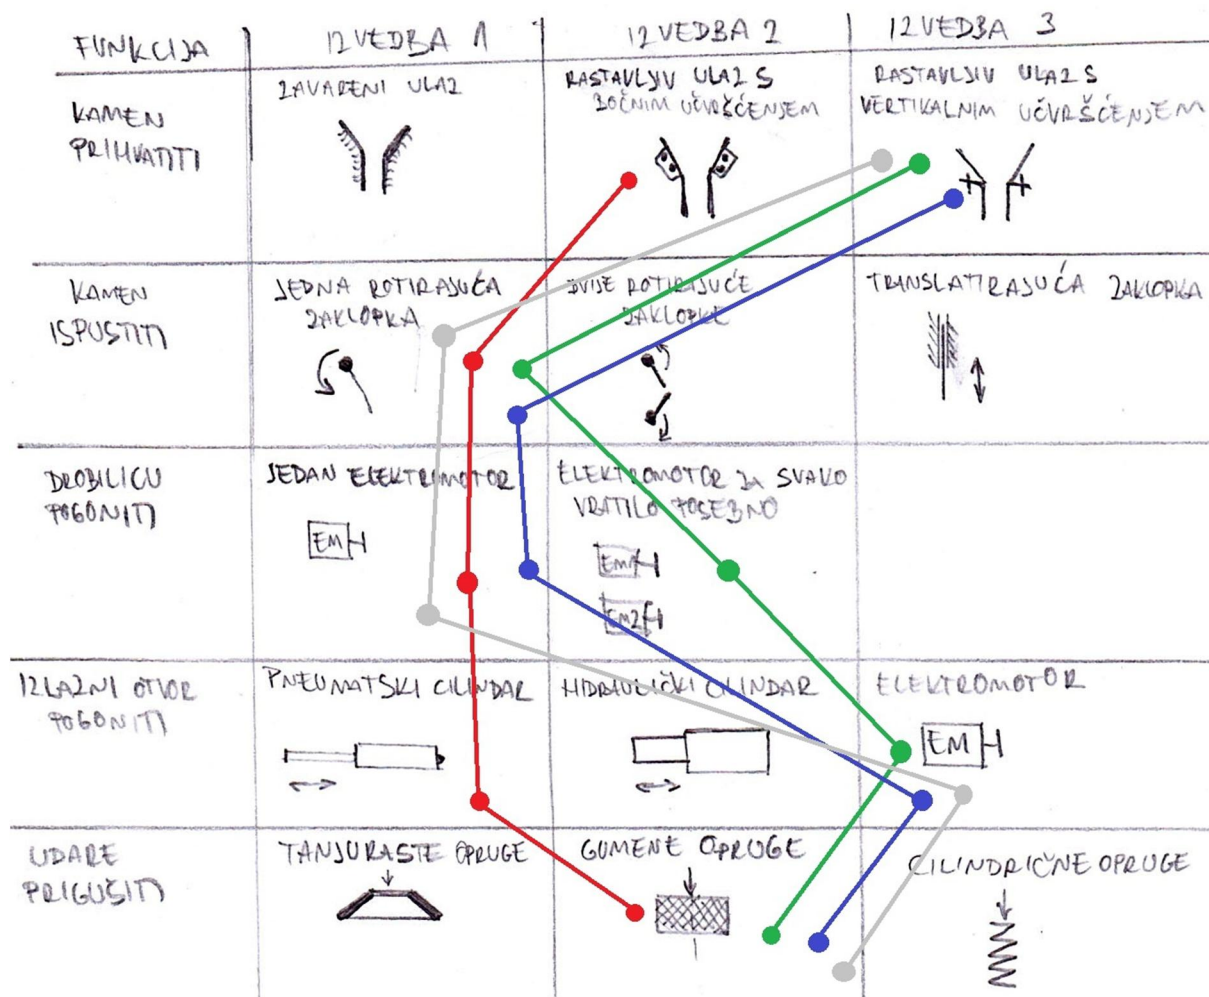 FUNKCIJA
IZVEDBA 1
IZVEDBA 2
IZVEDBA 3
KAMEN
PRIHVATITI
ZAVARENI ULAZ
RASTAVLJIV ULAZ S
BOČNIM UČVRŠĆENJEM
RASTAVLJIV ULAZ S
VERTIKALNIM UČVRŠĆENJEM
KAMEN
ISPUSTITI
JEDNA ROTIRAJUĆA
ZAKLOPKA
DVIJE ROTIRAJUĆE
ZAKLOPKE
TRANSLATIRAJUĆA ZAKLOPKA
DROBILICU
POGONITI
JEDAN ELEKTROMOTOR
EM
ELEKTROMOTOR ZA SVAKO
VRATILO POSEBNO
EM1
EM2
IZLAZNI OTVOR
POGONITI
PNEUMATSKI CILINDAR
HIDRAULIČKI CILINDAR
ELEKTROMOTOR
EM
UDARE
PRIGUŠITI
TANJURASTE OPRUGE
GUMENE OPRUGE
CILINDRIČNE OPRUGE